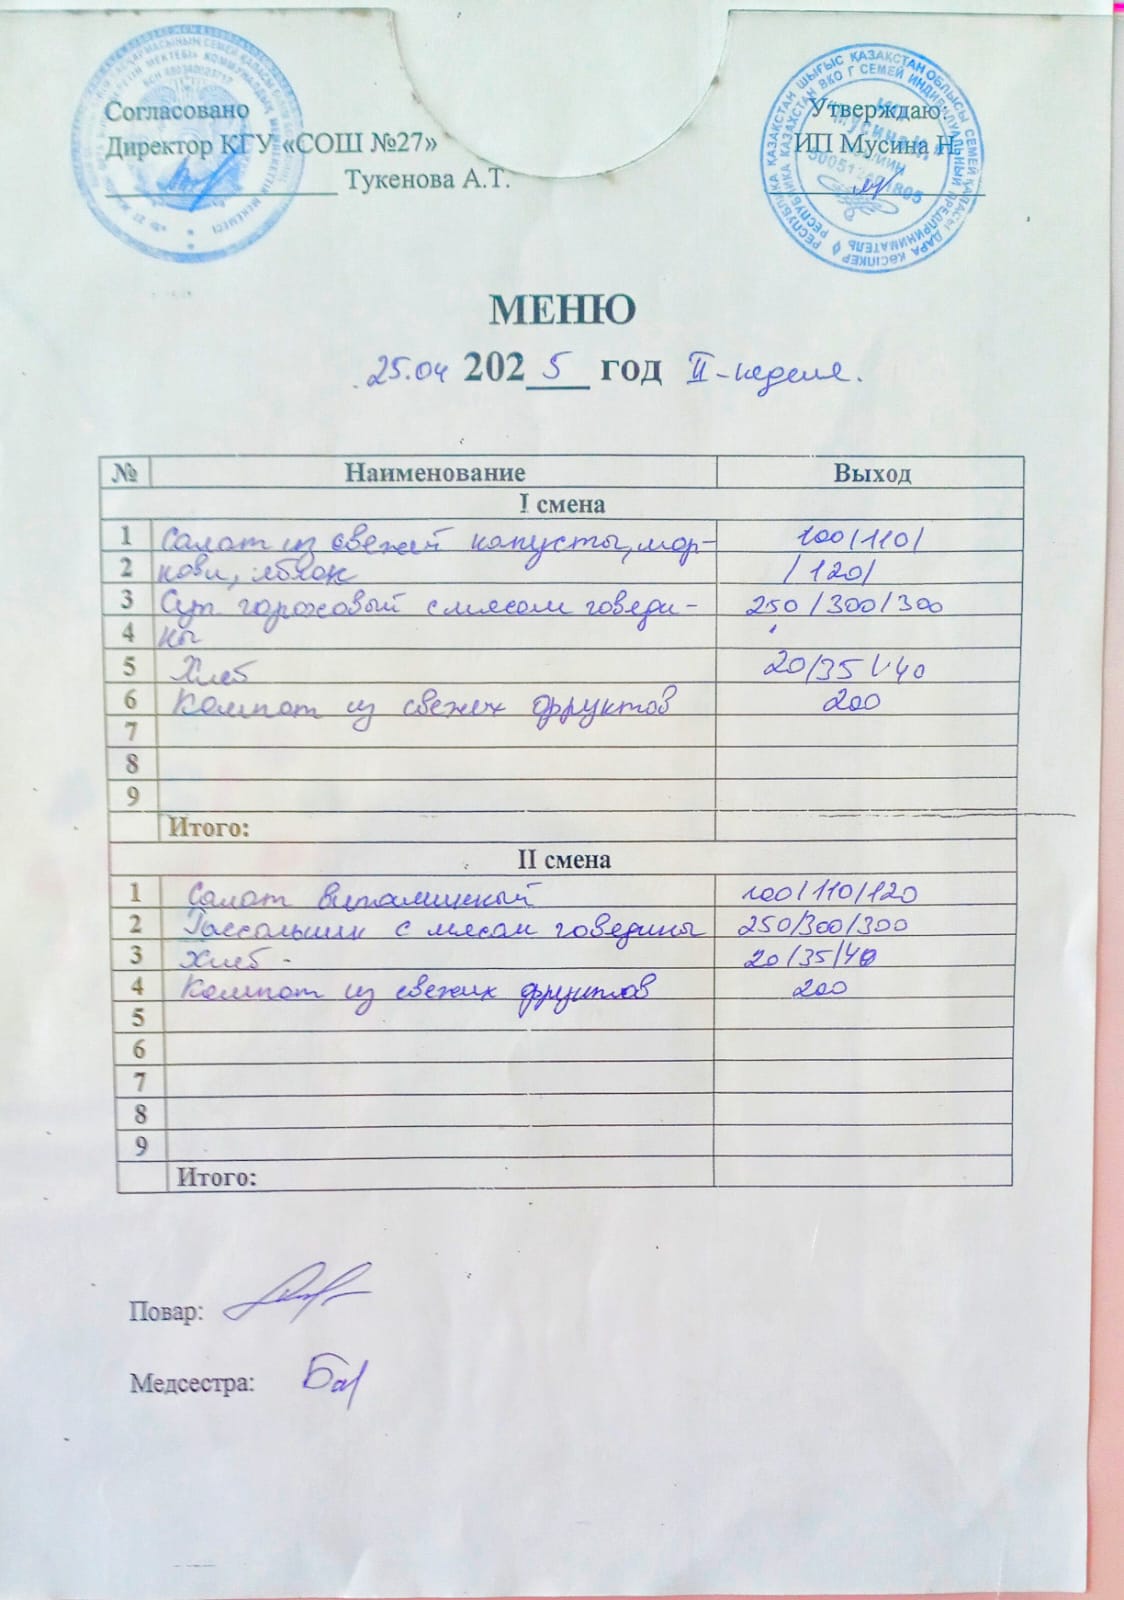 Согласовано
Директор КГУ «СОШ №27»
Тукенова А.Т.
Утверждаю:
ИП Мусина Н.
МЕНЮ
25.04 2025 год II-неделя.
№ Наименование Выход
I смена
1 Салат из свежей капусты, мор- 100/110/
2 кови, яблок /120/
3 Суп гороховый с мясом говяди- 250/300/300
4 ны
5 Хлеб 20/35/40
6 Компот из свежих фруктов 200
7
8
9
Итого:
II смена
1 Салат витаминный 100/110/120
2 Рассольник с мясом говядины 250/300/300
3 Хлеб - 20/35/40
4 Компот из свежих фруктов 200
5
6
7
8
9
Итого:
Повар:
Медсестра: